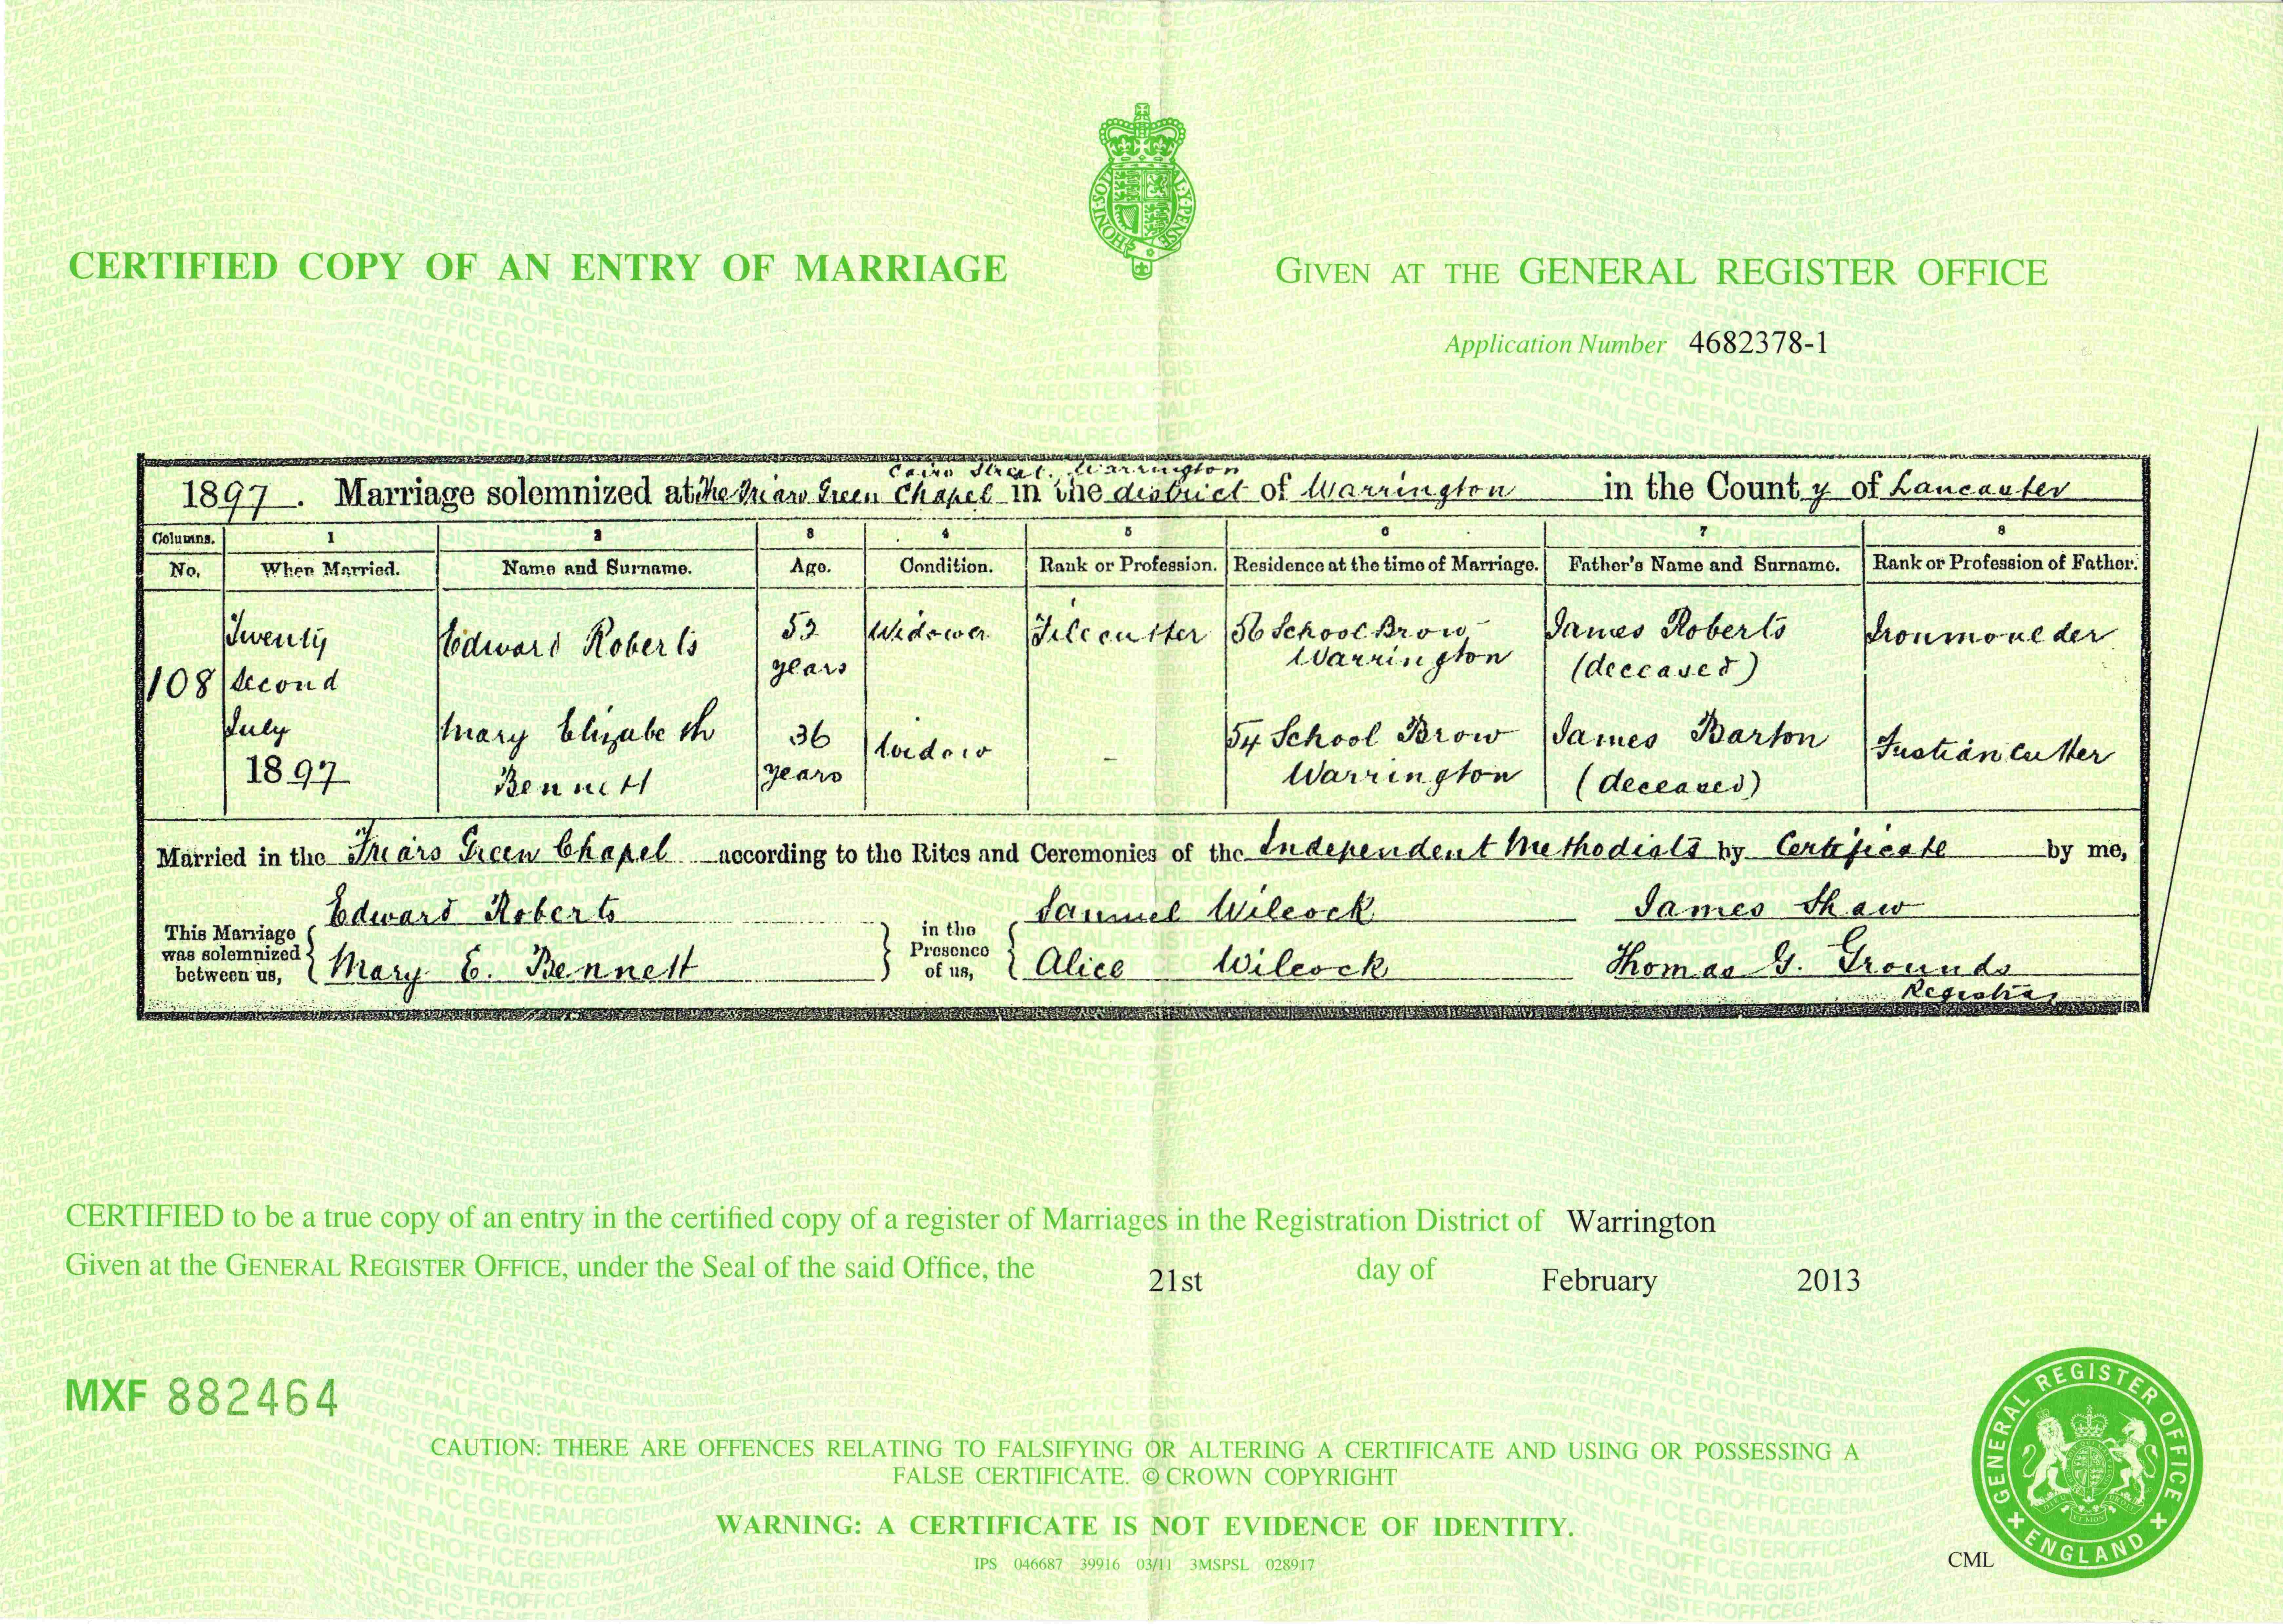 CERTIFIED COPY OF AN ENTRY OF MARRIAGE
GIVEN AT THE GENERAL REGISTER OFFICE
Application Number 4682378-1
Cairo Street, Warrington
1897. Marriage solemnized at the Friars Green Chapel in the district of Warrington in the County of Lancaster
Columns. 1 2 3 4 5 6 7 8
No. When Married. Name and Surname. Age. Condition. Rank or Profession. Residence at the time of Marriage. Father's Name and Surname. Rank or Profession of Father.
108 Twenty second July 1897
Edward Roberts 53 years Widower Filecutter 56 School Brow Warrington James Roberts (deceased) Ironmoulder
Mary Elizabeth Bennett 36 years Widow – 54 School Brow Warrington James Barton (deceased) Fustian Cutter
Married in the Friars Green Chapel according to the Rites and Ceremonies of the Independent Methodists by Certificate by me,
This Marriage was solemnized between us, Edward Roberts Mary E. Bennett
in the Presence of us, Samuel Wilcock Alice Wilcock
James Shaw
Thomas G. Grounds
Registrar
CERTIFIED to be a true copy of an entry in the certified copy of a register of Marriages in the Registration District of Warrington
Given at the GENERAL REGISTER OFFICE, under the Seal of the said Office, the 21st day of February 2013
MXF 882464
CAUTION: THERE ARE OFFENCES RELATING TO FALSIFYING OR ALTERING A CERTIFICATE AND USING OR POSSESSING A
FALSE CERTIFICATE. © CROWN COPYRIGHT
WARNING: A CERTIFICATE IS NOT EVIDENCE OF IDENTITY.
IPS 046687 39916 03/11 3MSPSL 028917
CML
GENERAL REGISTER OFFICE
ENGLAND